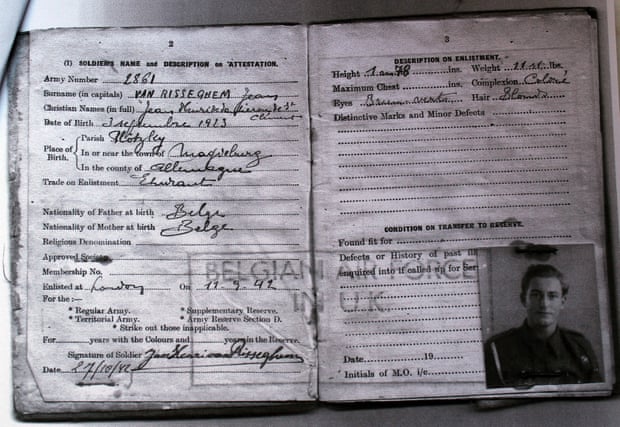 2
(1) SOLDIER'S NAME and DESCRIPTION on ATTESTATION.
Army Number 2861
Surname (in capitals) VAN RISSEGHEM Jean
Christian Names (in full) Jean
Date of Birth 3 Septembre 1923
Place of Birth. Parish
In or near the town of Magdeburg
In the county of Allemagne
Trade on Enlistment Etudiant
Nationality of Father at birth Belge
Nationality of Mother at birth Belge
Religious Denomination
Approved Society
Membership No.
Enlisted at London On 11-9-42
For the :—
* Regular Army. * Supplementary Reserve.
* Territorial Army. * Army Reserve Section D.
* Strike out those inapplicable.
For years with the Colours and years in the Reserve.
Signature of Soldier
Date 27/10/42
BELGIAN
IN U.K.
3
DESCRIPTION ON ENLISTMENT.
Height ins. Weight lbs.
Maximum Chest ins. Complexion Coloré
Eyes Hair Blonds
Distinctive Marks and Minor Defects
CONDITION ON TRANSFER TO RESERVE.
Found fit for
Defects or History of past
enquired into if called up for Ser
Date 19
Initials of M.O. i/c